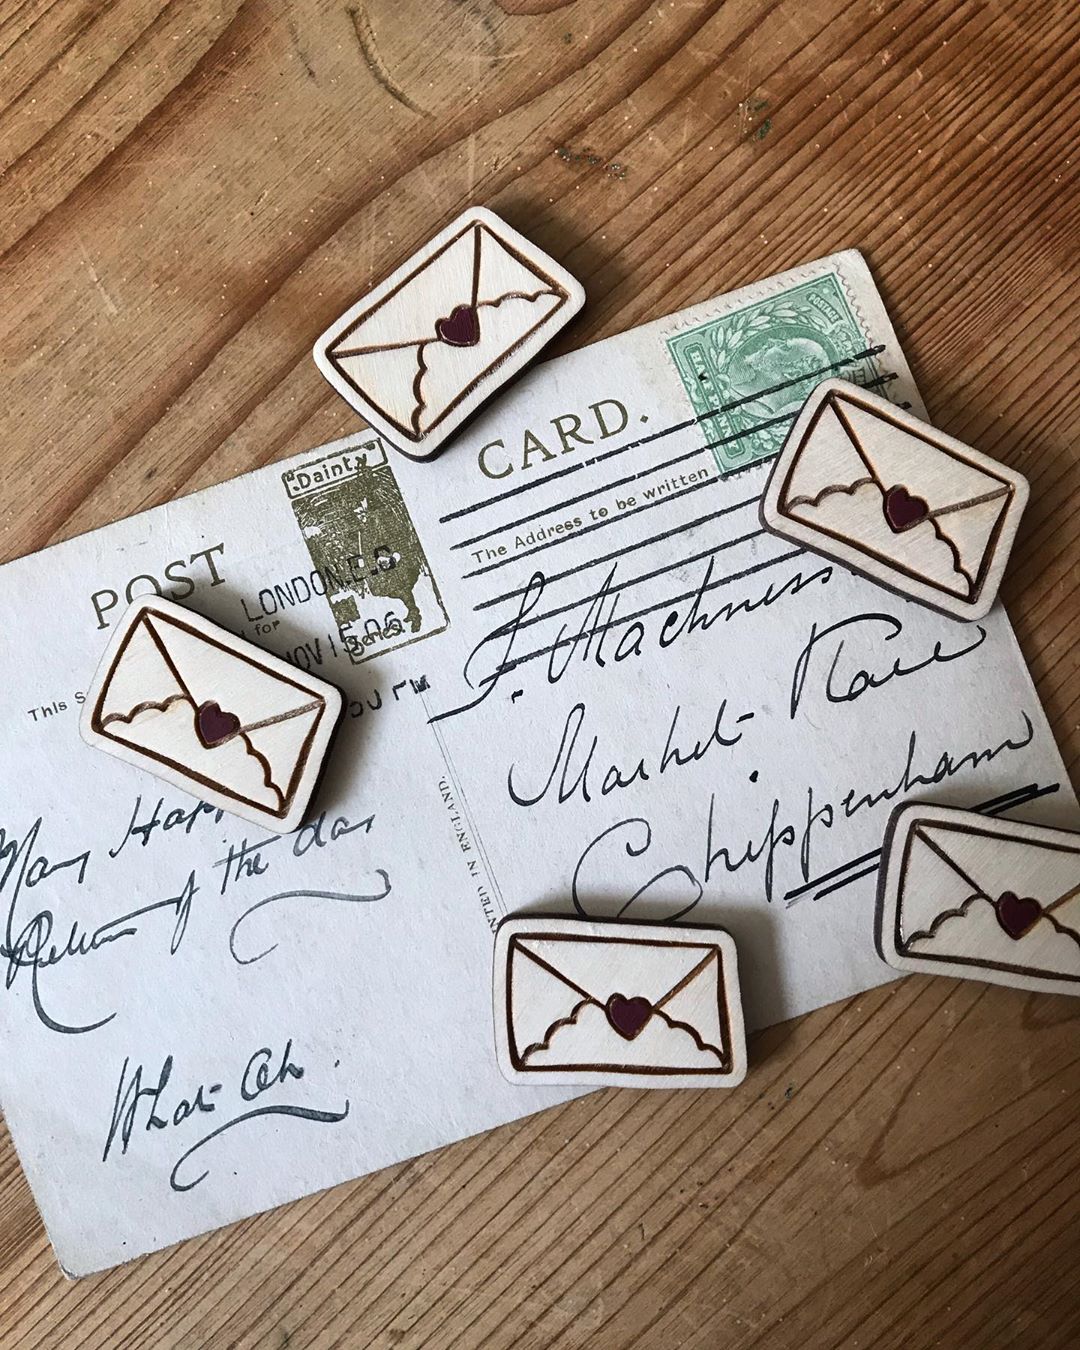 POST CARD.
"Dainty"
Series.
LONDON.E.C
NOV 15 06
for
This S
The Address to be written
POSTAGE
HALF PENNY
Many Happ
Return of the day
What Oh.
F. Mackness
Market Place
Chippenham
NTED IN ENGLAND.